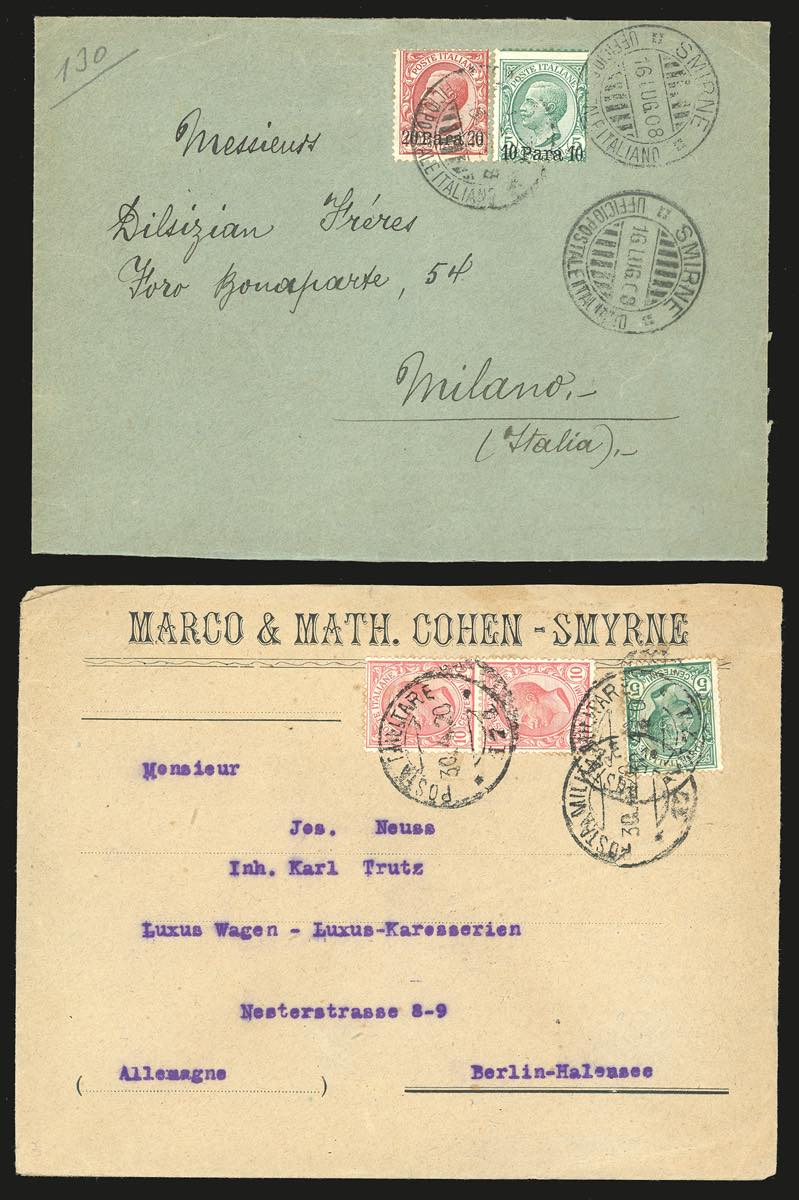 130
POSTE ITALIANE
20 Para 20
POSTE ITALIANE
10 Para 10
SMIRNE
16 LUG. 08
UFFICIO POSTALE ITALIANO
SMIRNE
16 LUG. 08
UFFICIO POSTALE ITALIANO
Messieurs
Dilsizian Fréres
Foro Bonaparte, 54
Milano.-
(Italia).-
MARCO & MATH. COHEN - SMYRNE
POSTE ITALIANE
10
10
POSTA MILITARE
POSTA MILITARE
5 CENTESIMI 5
POSTE ITALIANE
Monsieur
Jos. Neuss
Inh. Karl Trutz
Luxus Wagen - Luxus-Karosserien
Nesterstrasse 8-9
(Allemagne)
Berlin-Halensee